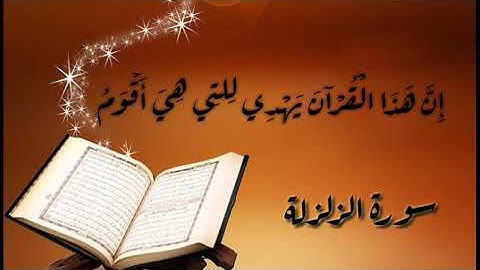 إِنَّ هَذَا الْقُرْآنَ يَهْدِي لِلتي هِيَ أَقْوَمُ
سورة الزلزلة